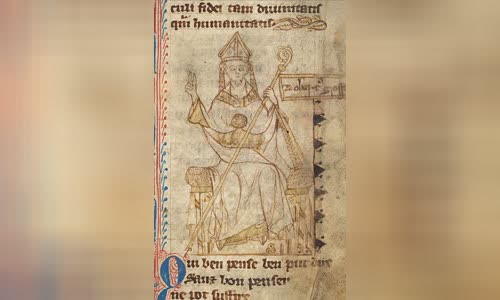 culi fidei tam diuinitatis
qm humanitatis
Qui ben pense ben put dire
Sanz bon penser
ne pot suffire